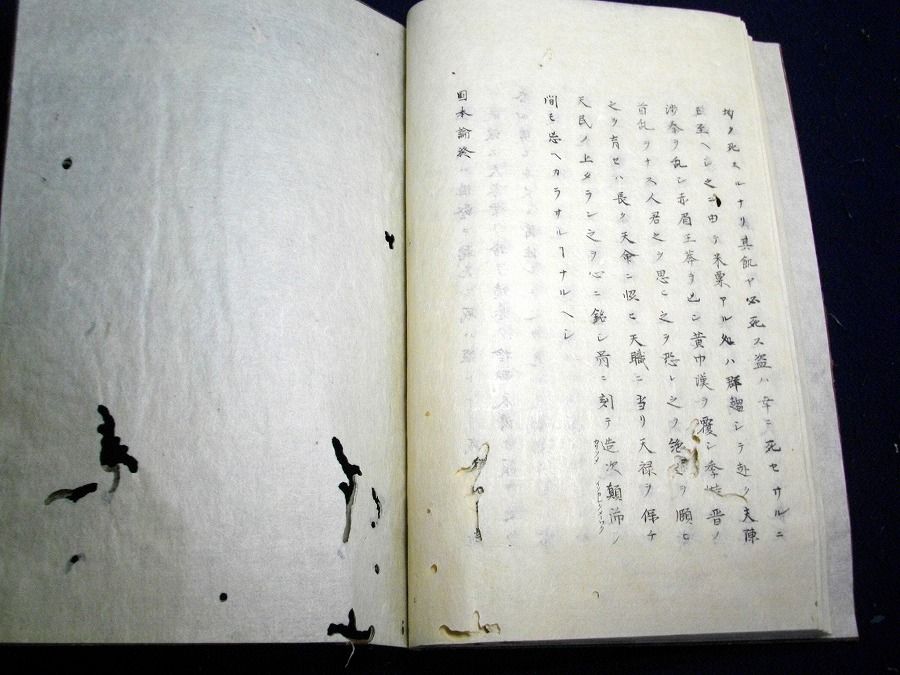 均ク死スルナリ其飢ヤ必死ス盗ハ幸ニ死セサルニ
且至ヘシ之ニ由テ米粟アル処ハ群趨シテ赴ク夫陳
渉秦ヲ乱シ赤眉王莽ヲ亡シ黄巾漢ヲ覆シ李 晋ノ
首乱ヲナス人君之ヲ思ヒ之ヲ恐レ之ヲ 之ヲ願ヒ
之ヲ育セハ長ク天命ニ 天職ニ当リ天禄ヲ保ケ
天民ノ上タラン之ヲ心ニ銘シ骨ニ刻テ造次顛沛ノ
間モ忘ヘカラサルヿナルヘシ
国本論終